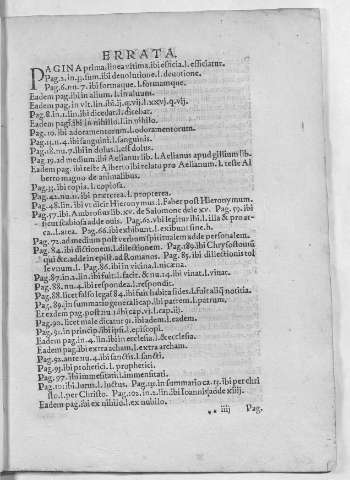 ERRATA.
PAGINA prima.linea vltima.ibi efficia.l.efficiatur.
Pag.2.in.33.sum.ibi deuolutione.l.deuotione.
Pag.6.nu.7.ibi formaque.l.formamque.
Eadem pag.ibi in alium.l.in aluum.
Eadem pag.in vlt.lin.ibi.ij.q.vij.l.xxvj.q.vij.
Pag.8.in.1.lin.ibi dicedat.l.dicebat.
Eadem pagi.ibi in nihillo.l.in nihilo.
Pag.10.ibi adoramentorum.l.odoramentorum.
Pag.15.n.4.ibi sanguini.l.sanguinis.
Pag.18.nu.7.ibi in dolus.l.est dolus.
Pag.19.ad medium.ibi Aelianus lib.l.Aelianus apud gillium lib.
Eadem pag.ibi teste Alberto ibi relato pro Aelianum.l.teste Al
berto magno de animalibus.
Pag.33.ibi copia.l.copiosa.
Pag.42.nu.11.ibi præterea.l.propterea.
Pag.48.lin.ibi vt dicit Hieronymus.l.Faber post Hieronymum.
Pag.57.ibi Ambrosius lib.xv. de Salomone dele xv. Pag.59.ibi
sicut scabiosa adde ouis. Pag.62.vbi legitur ibi.l.illa & pro ar-
ca.l.area. Pag.66.ibi exhibunt.l.exibunt sine h.
Pag.72.ad medium post verbum spiritualem adde personalem.
Pag.84.ibi dictionem.l.dilectionem. Pag.189.ibi Chrysostoum
qui &c.adde in epist.ad Romanos. Pag.85.ibi dillectionis tol
le vnum.l. Pag.86.ibi in vicina.l.nicæna.
Pag.87.in.2.lin.ibi fuit.l.facit.& nu.14.ibi vinat.l.viuat.
Pag.88.nu.4.ibi respondea.l.respondit.
Pag.88.licet falso legat 84.ibi fuit habita fides.l.fuit alicui notitia.
Pag.89.in summario generali cap.ibi pattem.l.patrum.
Et eadem pag.post nu.1.ibi cap.vj.l.cap.iij.
Pag.90.licet male dicatur 91.ibi adem.l.eadem.
Pag.91.in principi.ibi ipsi.l.episcopi.
Eadem pag.in.4.lin.ibi in ecclesia.l.& ecclesia.
Eadem pag.ibi extra acham.l.extra archam.
Pag.92.ante nu.4.ibi sanctis.l.sancti.
Pag.93.ibi prohetici.l.prophetici.
Pag.97.ibi immesitati.l.immensitati.
Pag.101.ibi lurus.l.luctus. Pag.151.in summario ca.13.ibi per chri
sto.l.per Christo. Pag.102.in.2.lin.ibi Ioannis adde xiiij.
Eadem pag.ibi ex nihilo.l.ex nobilo.
iiij Pag.